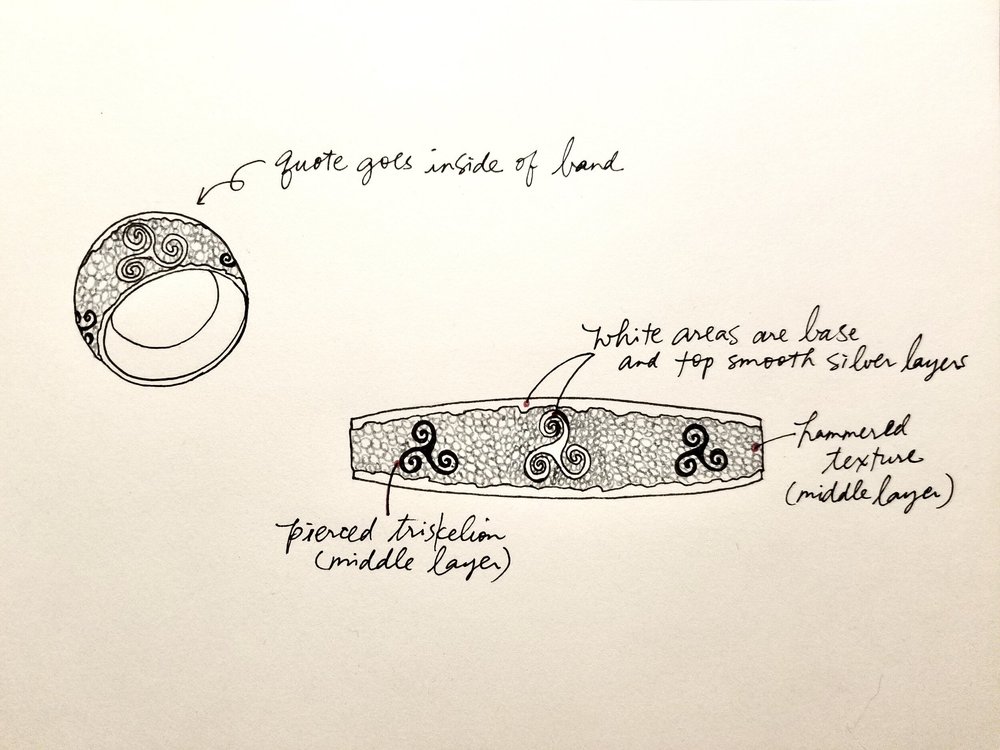 quote goes inside of band
White areas are base
and top smooth silver layers
hammered
texture
(middle layer)
pierced triskelion
(middle layer)